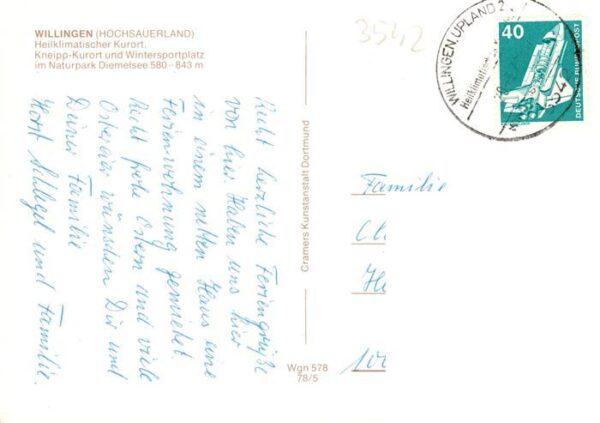 WILLINGEN (HOCHSAUERLAND)
Heilklimatischer Kurort,
Kneipp-Kurort und Wintersportplatz
im Naturpark Diemelsee 580-843 m
3542
WILLINGEN, UPLAND 2
Heilklimatischer
40
DEUTSCHE BUNDESPOST
Recht herzliche Feriengrüße
von hier. Haben uns hier
in einem netten Haus eine
Ferienwohnung gemietet.
Recht frohe Ostern und viele
Ostereier wünschen Dir und
Deiner Familie
Horst Schlegel und Familie.
Cramers Kunstanstalt Dortmund
Wgn 578
78/5
Familie